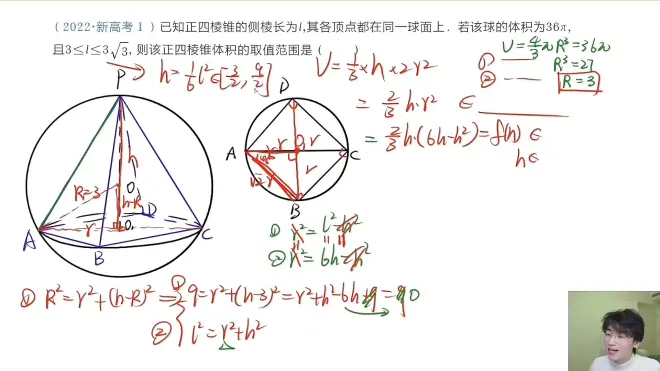 (2022·新高考Ⅰ) 已知正四棱锥的侧棱长为l,其各顶点都在同一球面上. 若该球的体积为36π,
且3≤l≤3√3, 则该正四棱锥体积的取值范围是 (
V=4/3πR³=36π
① —— R³=27
② —— R=3
h=1/6 l²∈[3/2, 9/2]
V=1/3×h×2r²
=2/3 h·r² ∈
=2/3 h·(6h-h²)=f(h) ∈
h∈
P
h
R=3
O
h-R
D
r
O₁
A
B
C
D
A
B
C
r
r
r
√2r
① r²=l²-h²
② r²=6h-h²
① R²=r²+(h-R)² ⇒ ① 9=r²+(h-3)²=r²+h²-6h+9=9 0
② l²=r²+h²